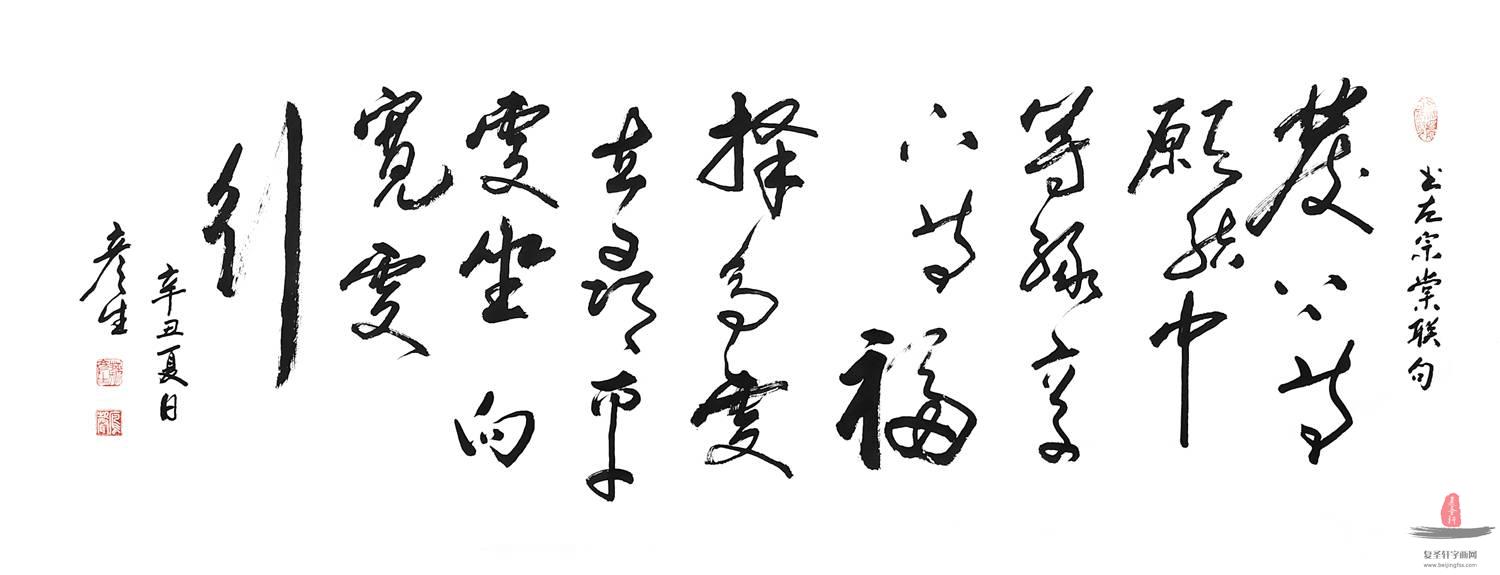 书左宗棠联句
發上等
願結中
等緣享
下等福
择高處
立尋平
處坐向
寬處行
辛丑夏日
彦生
复圣轩字画网
www.beijingfss.com